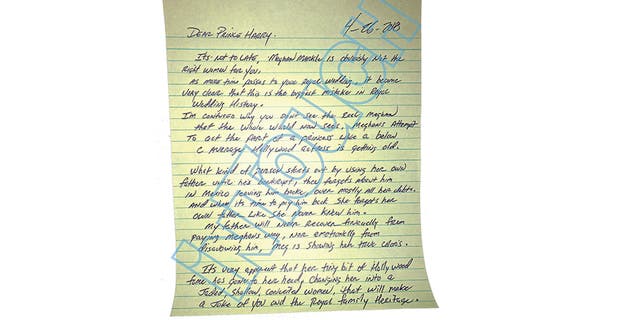 4-26-2018
DEAR PRINCE HARRY,
It's not to late, Meghan Markle is obviously not the
right women for you.
As more time passes to your royal wedding, it became
very clear that this is the biggest mistake in Royal
Wedding History.
I'm confused why you don't see the real Meghan
that the whole world now sees. Meghan's Attempt
To act the part of a princess like a below
C average Hollywood actress is getting old.
What kind of person starts out by using her own
father until he's bankrupt, then forgets about him
in Mexico leaving him broke, over mostly all her debts.
And when it's time to pay him back she forgets her
own father like she never knew him.
My father will never recover financially from
paying Meghans way, nor emotionally from
disavowing him. Meg is showing her true colors.
It's very apparent that her tiny bit of Hollywood
fame has gone to her head. Changing her into a
Jaded, shallow, conceited women, that will make
a Joke of you and the Royal family Heritage.
InTouch